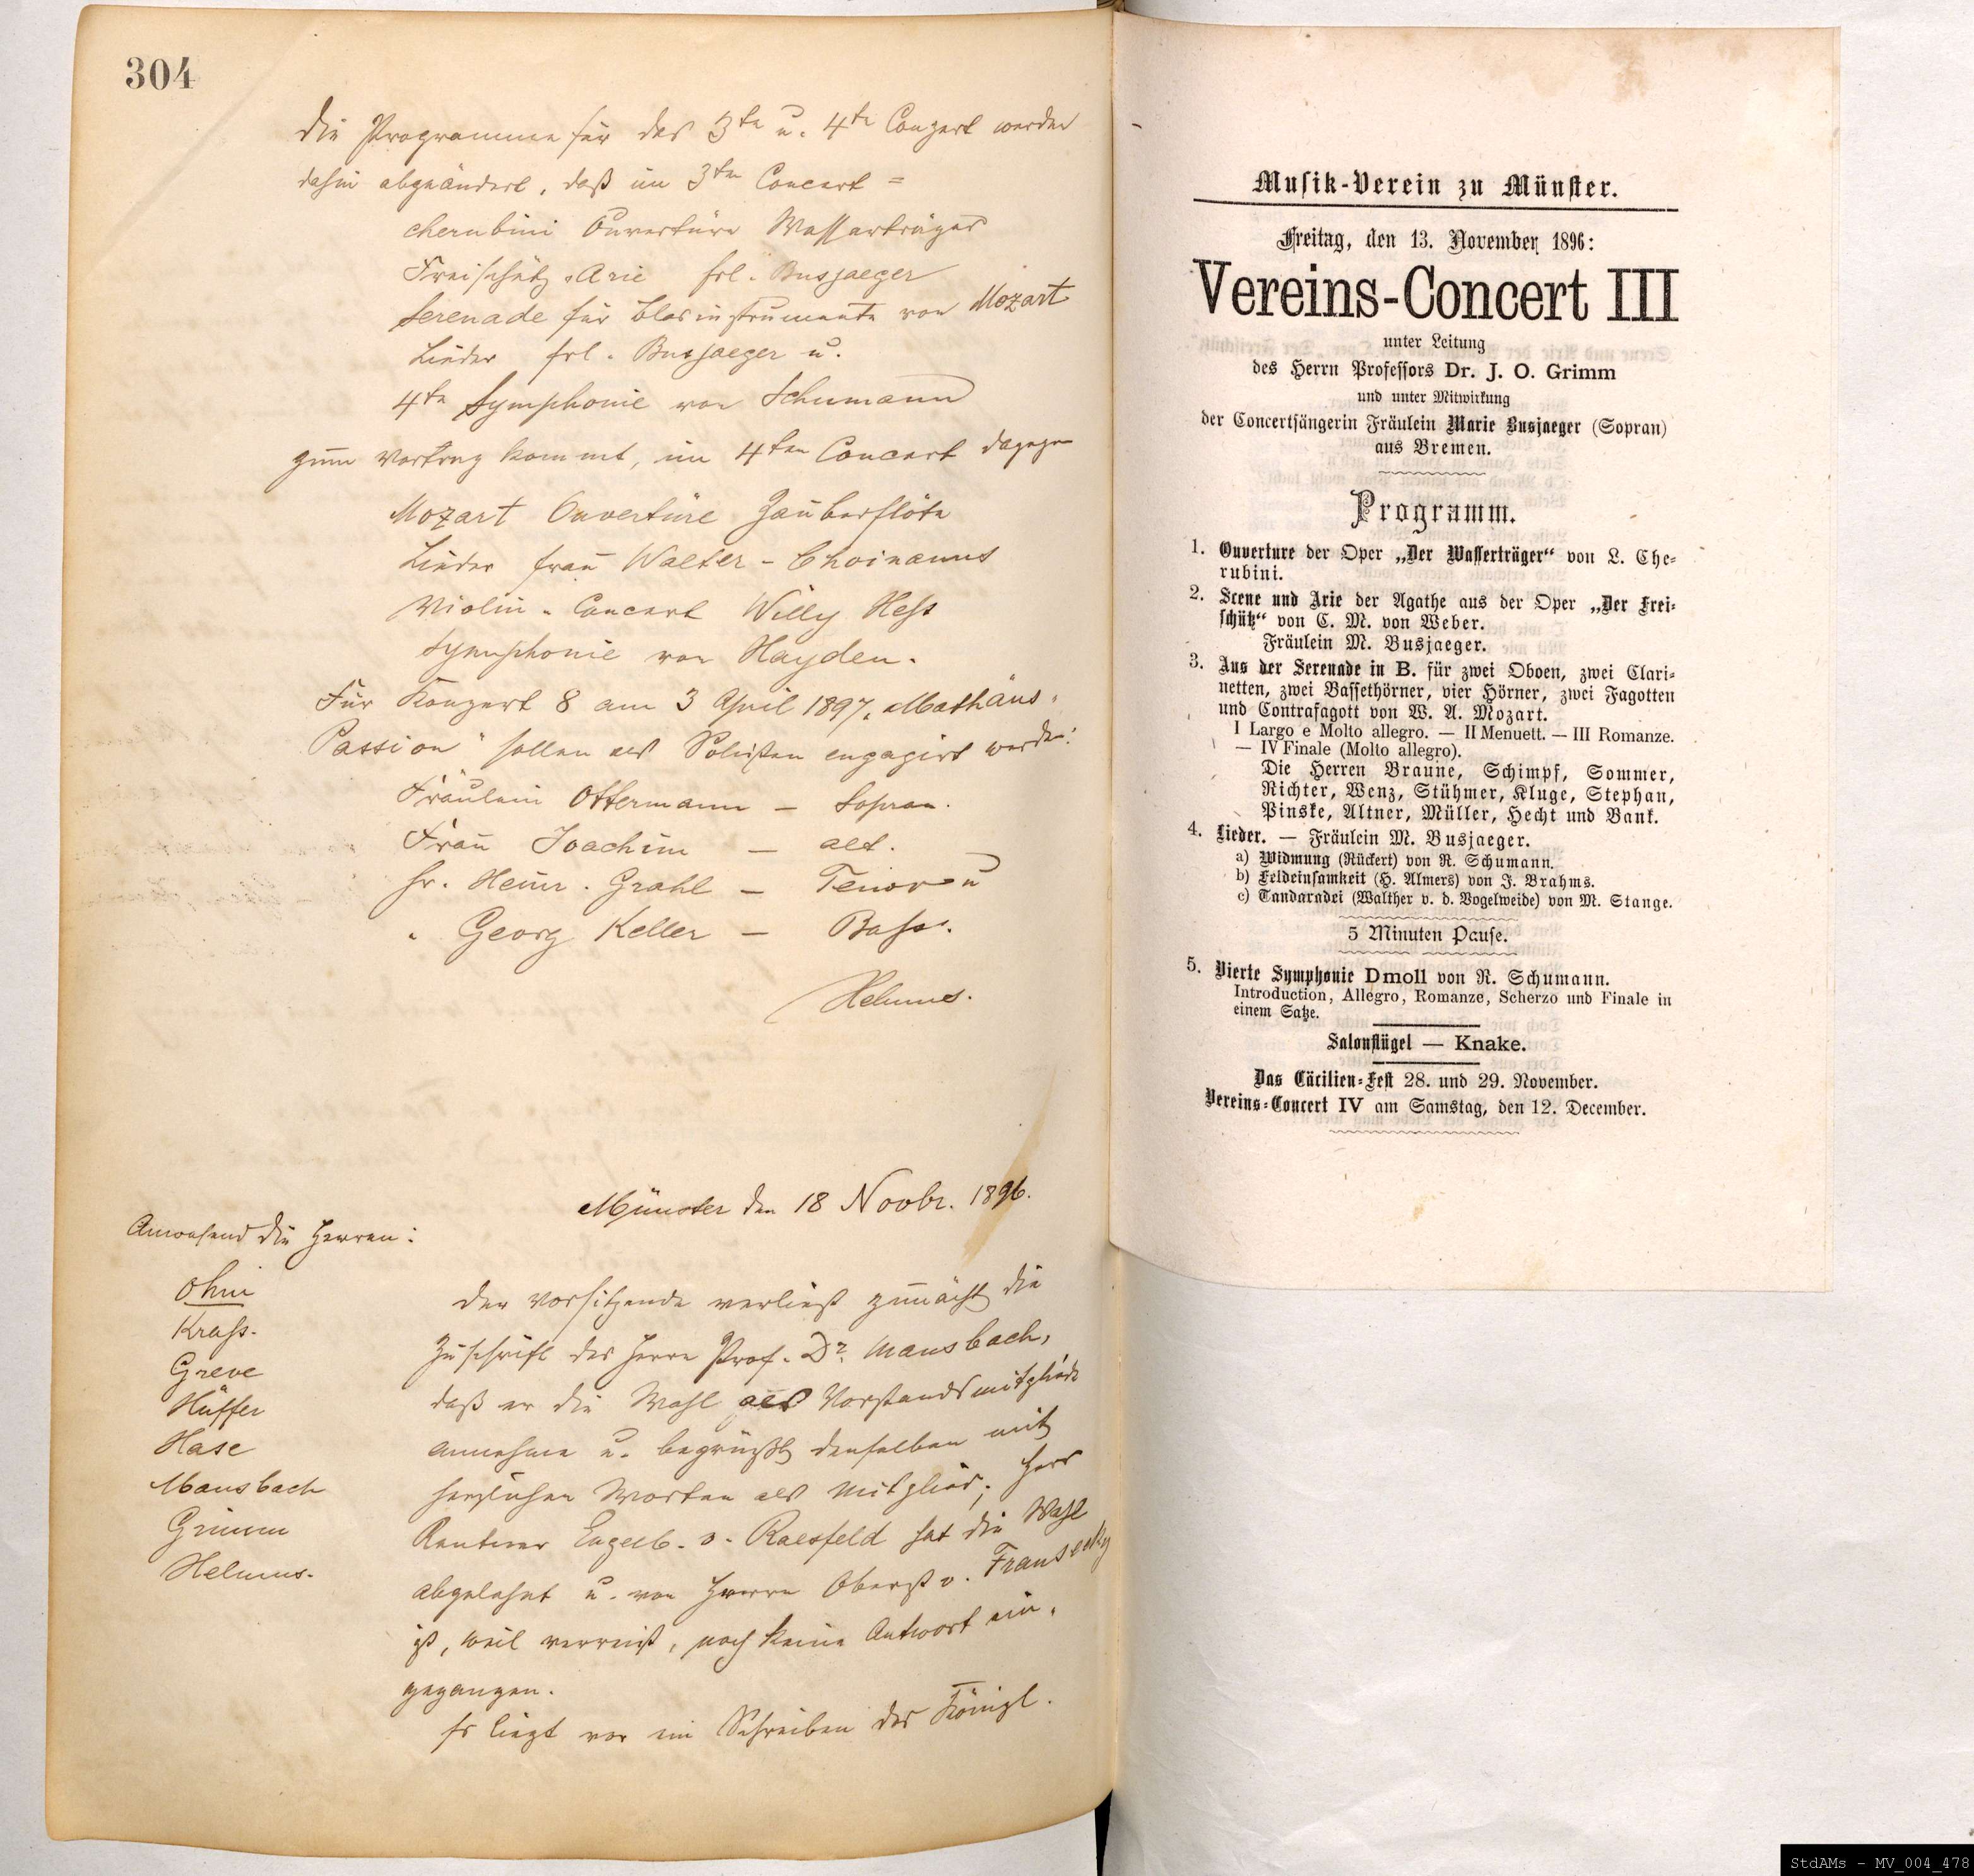 304
Die Programme für das 3te u. 4te Conzert werden
dahin abgeändert, daß im 3ten Concert =
Cherubini Ouvertüre Wasserträger
Freischütz-Arie Frl. Busjaeger
Serenade für Blasinstrumente von Mozart
Lieder Frl. Busjaeger u.
4te Symphonie von Schumann
zum Vortrag kommt, im 4ten Concert dagegen
Mozart Ouvertüre Zauberflöte
Lieder Frau Walter-Choinanus
Violin-Concert Willy Hess
Symphonie von Hayden.
Für Konzert 8 am 3 April 1897 „Mathäus-
Passion" sollen als Solisten engagirt werden:
Fräulein Ottermann – Sopran.
Frau Joachim – Alt.
Hr. Heinr. Grahl – Tenor u
" Georg Keller – Bass.
Helmus.
Münster den 18 Novbr. 1896.
Anwesend die Herren:
Ohm
Krass.
Greve
Hüffer
Hase
Mausbach
Grimm
Helmus.
Der Vorsitzende verliest zunächst die
Zuschrift des Herrn Prof. Dr. Mausbach,
daß er die Wahl als Vorstandsmitglied
annehme u. begrüßt denselben mit
herzlichen Worten als Mitglied; Herr
Rentner Engelb. v. Raesfeld hat die Wahl
abgelehnt u. von Herrn Oberst v. Fransecky
ist, weil verreist, noch keine Antwort ein-
gegangen.
Es liegt vor ein Schreiben des Königl.
Musik-Verein zu Münster.
Freitag, den 13. November 1896:
Vereins-Concert III
unter Leitung
des Herrn Professors Dr. J. O. Grimm
und unter Mitwirkung
der Concertsängerin Fräulein Marie Busjaeger (Sopran)
aus Bremen.
Programm.
1. Ouverture der Oper „Der Wasserträger“ von L. Che-
rubini.
2. Scene und Arie der Agathe aus der Oper „Der Frei-
schütz“ von C. M. von Weber.
Fräulein M. Busjaeger.
3. Aus der Serenade in B. für zwei Oboen, zwei Clari-
netten, zwei Bassethörner, vier Hörner, zwei Fagotten
und Contrafagott von W. A. Mozart.
I Largo e Molto allegro. — II Menuett. — III Romanze.
— IV Finale (Molto allegro).
Die Herren Braune, Schimpf, Sommer,
Richter, Wenz, Stühmer, Kluge, Stephan,
Pinske, Altner, Müller, Hecht und Bank.
4. Lieder. — Fräulein M. Busjaeger.
a) Widmung (Rückert) von R. Schumann.
b) Feldeinsamkeit (H. Almers) von J. Brahms.
c) Tandaradei (Walther v. d. Vogelweide) von M. Stange.
5 Minuten Pause.
5. Vierte Symphonie Dmoll von R. Schumann.
Introduction, Allegro, Romanze, Scherzo und Finale in
einem Satze.
Salonflügel — Knake.
Das Cäcilien-Fest 28. und 29. November.
Vereins-Concert IV am Samstag, den 12. December.
StdAMs - MV_004_478